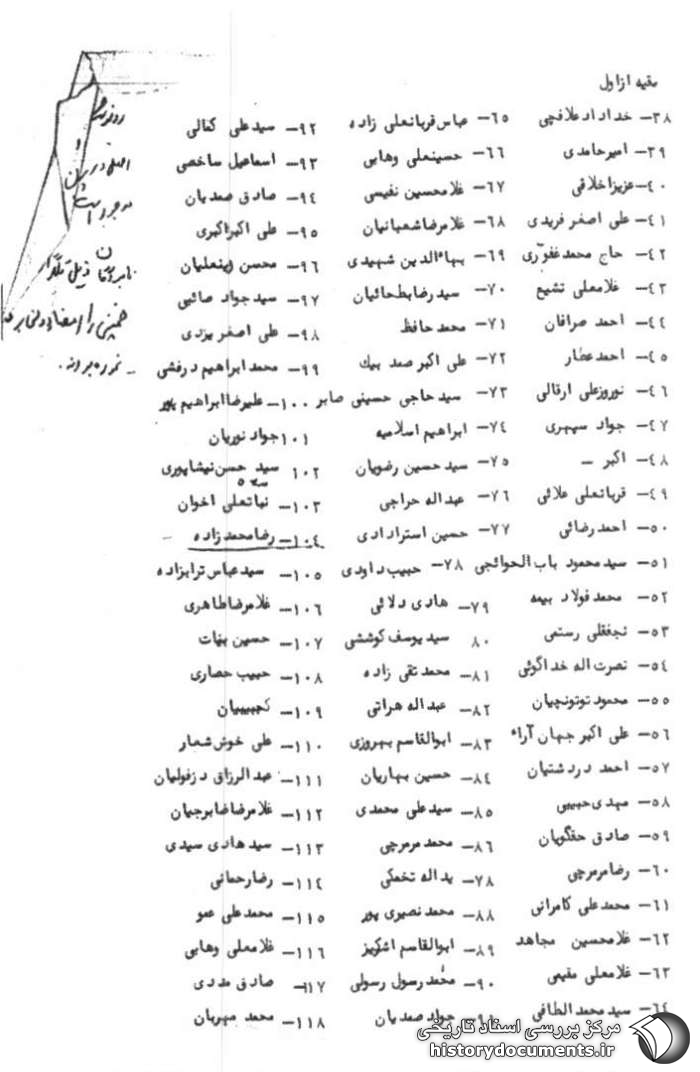 بقیه از اول
۳۸- خداداد علاقچی
۳۹- امیر حامدی
۴۰- عزیز اخلاقی
۴۱- علی اصغر فریدی
۴۲- حاج محمد غفوری
۴۳- غلامعلی تشیع
۴۴- احمد صرافان
۴۵- احمد عطار
۴۶- نوروزعلی ارقالی
۴۷- جواد سپهری
۴۸- اکبر -
۴۹- قربانعلی علائی
۵۰- احمد رضائی
۵۱- سید محمود باب الحوائجی
۵۲- محمد فولاد بیمه
۵۳- نجفقلی رستمی
۵۴- نصرت اله خداگوئی
۵۵- محمود توتونچیان
۵۶- علی اکبر جهان آراء
۵۷- احمد دردشتیان
۵۸- مهدی حبیبی
۵۹- صادق حقگویان
۶۰- رضا مرمرچی
۶۱- محمد علی کامرانی
۶۲- غلامحسین مجاهد
۶۳- غلامعلی مقیمی
۶۴- سید محمد الطافی
۶۵- عباس قربانعلی زاده
۶۶- حسینعلی وهابی
۶۷- غلامحسین نفیسی
۶۸- غلامرضا شعبانیان
۶۹- بهاءالدین شهیدی
۷۰- سید رضا بطحائیان
۷۱- محمد حافظ
۷۲- علی اکبر صمد بیک
۷۳- سید حاجی حسینی صابر
۷۴- ابراهیم اسلامیه
۷۵- سید حسین رضویان
۷۶- عبداله حراجی
۷۷- حسین استرادادی
۷۸- حبیب داودی
۷۹- هادی دلائی
۸۰ سید یوسف کوششی
۸۱- محمد تقی زاده
۸۲- عبداله هراتی
۸۳- ابوالقاسم بهروزی
۸۴- حسین بهاریان
۸۵- سید علی محمدی
۸۶- محمد مرمرچی
۷۸- یداله تخمکی
۸۸- محمد نصیری پور
۸۹- ابوالقاسم اشکریز
۹۰- محمد رسول رسولی
جواد صمدیان
۹۲- سید علی کمالی
۹۳- اسماعیل ساخصی
۹۴- صادق صمدیان
۹۵- علی اکبر اکبری
۹۶- محسن زینعلیان
۹۷- سید جواد صائبی
۹۸- علی اصغر یزدی
۹۹- محمد ابراهیم درفشی
۱۰۰- علیرضا ابراهیم پور
۱۰۱ جواد نوریان
۱۰۲ سید حسن نیشاپوری
۱۰۳- نباتعلی اخوان
۱۰۴- رضا محمد زاده
۱۰۵- سید عباس ترابزاده
۱۰۶- غلامرضا طاهری
۱۰۷- حسین بنات
۱۰۸- حبیب حصاری
۱۰۹-
۱۱۰- علی خوش شمار
۱۱۱- عبدالرزاق دزفولیان
۱۱۲- غلامرضا ضابرجیان
۱۱۳- سید هادی سیدی
۱۱۴- رضا رحمانی
۱۱۵- محمد علی عمو
۱۱۶- غلامعلی وهابی
۱۱۷- صادق مددی
۱۱۸- محمد مهربان
مرکز بررسی اسناد تاریخی
historydocuments.ir